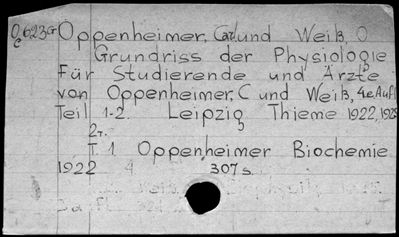 O/c 623G Oppenheimer, Carl und Weiß, O
Grundriss der Physiologie
für Studierende und Ärzte
von Oppenheimer, C und Weiß, 4e Aufl
Teil 1-2. Leipzig Thieme 1922, 1923
2т.
T. 1 Oppenheimer Biochemie
1922 4 307 s.